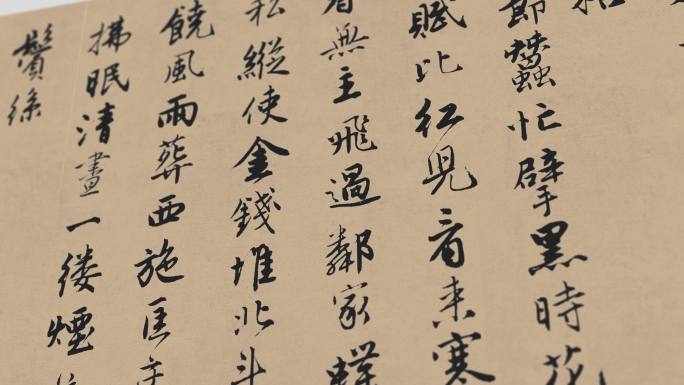 節蠶忙擘黑時花
賦比紅兒看來寒
春無主飛過鄰家蝶
私縱使金錢堆北斗
饒風雨葬西施匡
拂眠清晝一縷煙
鬢絲